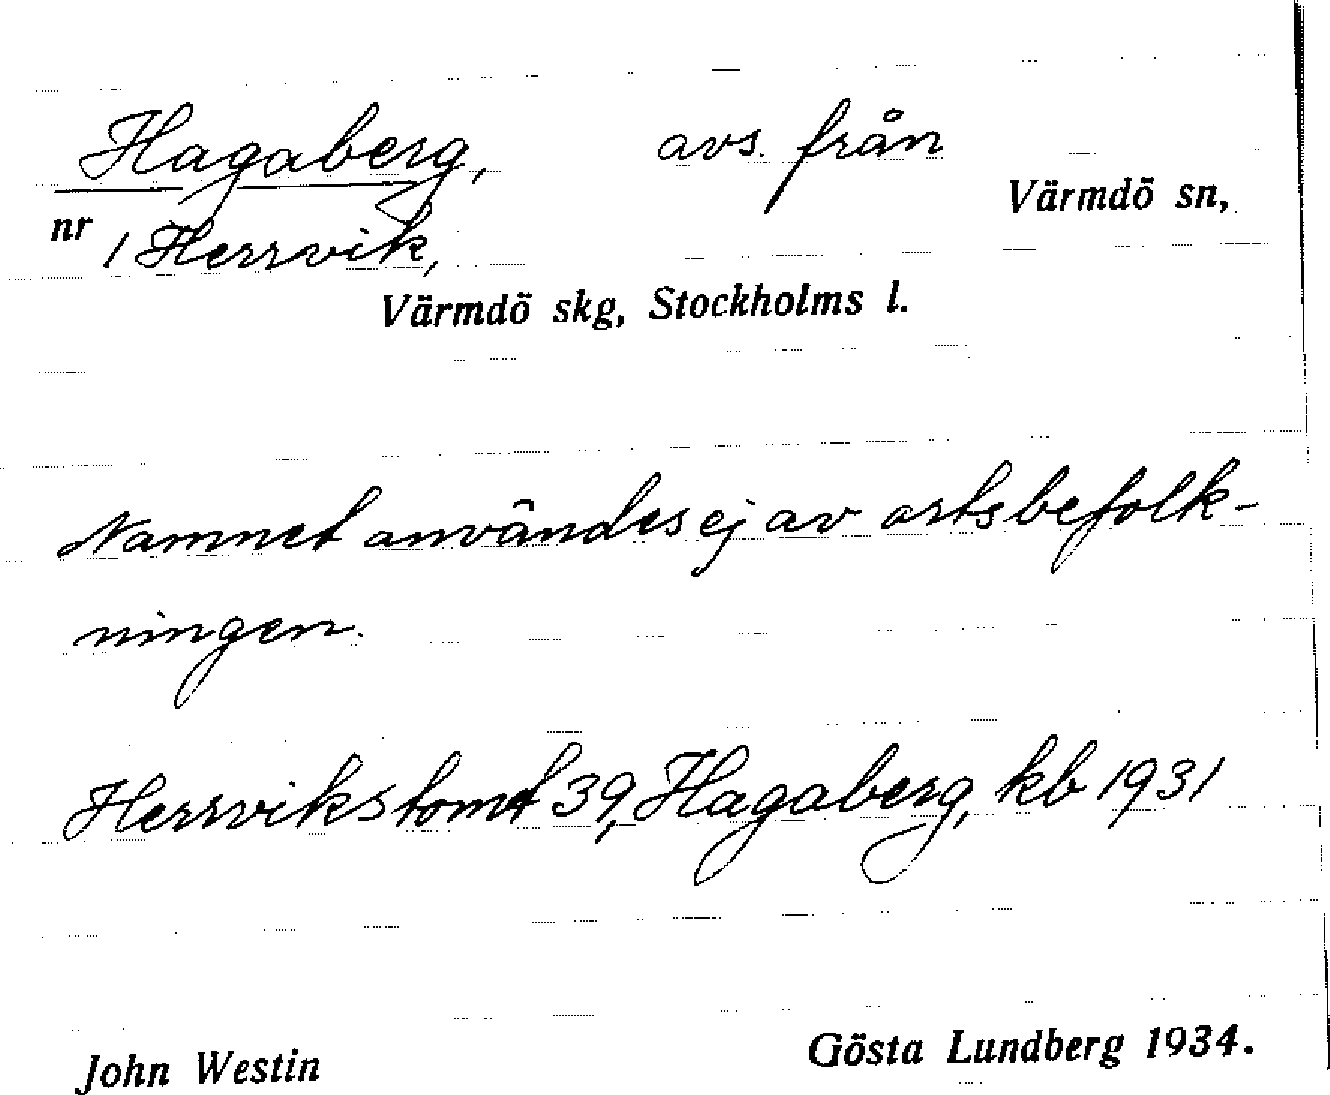 Hagaberg, avs. från
Värmdö sn,
nr 1 Herrvik,
Värmdö skg, Stockholms l.
Namnet användes ej av ortsbefolk-
ningen.
Herrvikstomt 39, Hagaberg, kb 1931
John Westin Gösta Lundberg 1934.